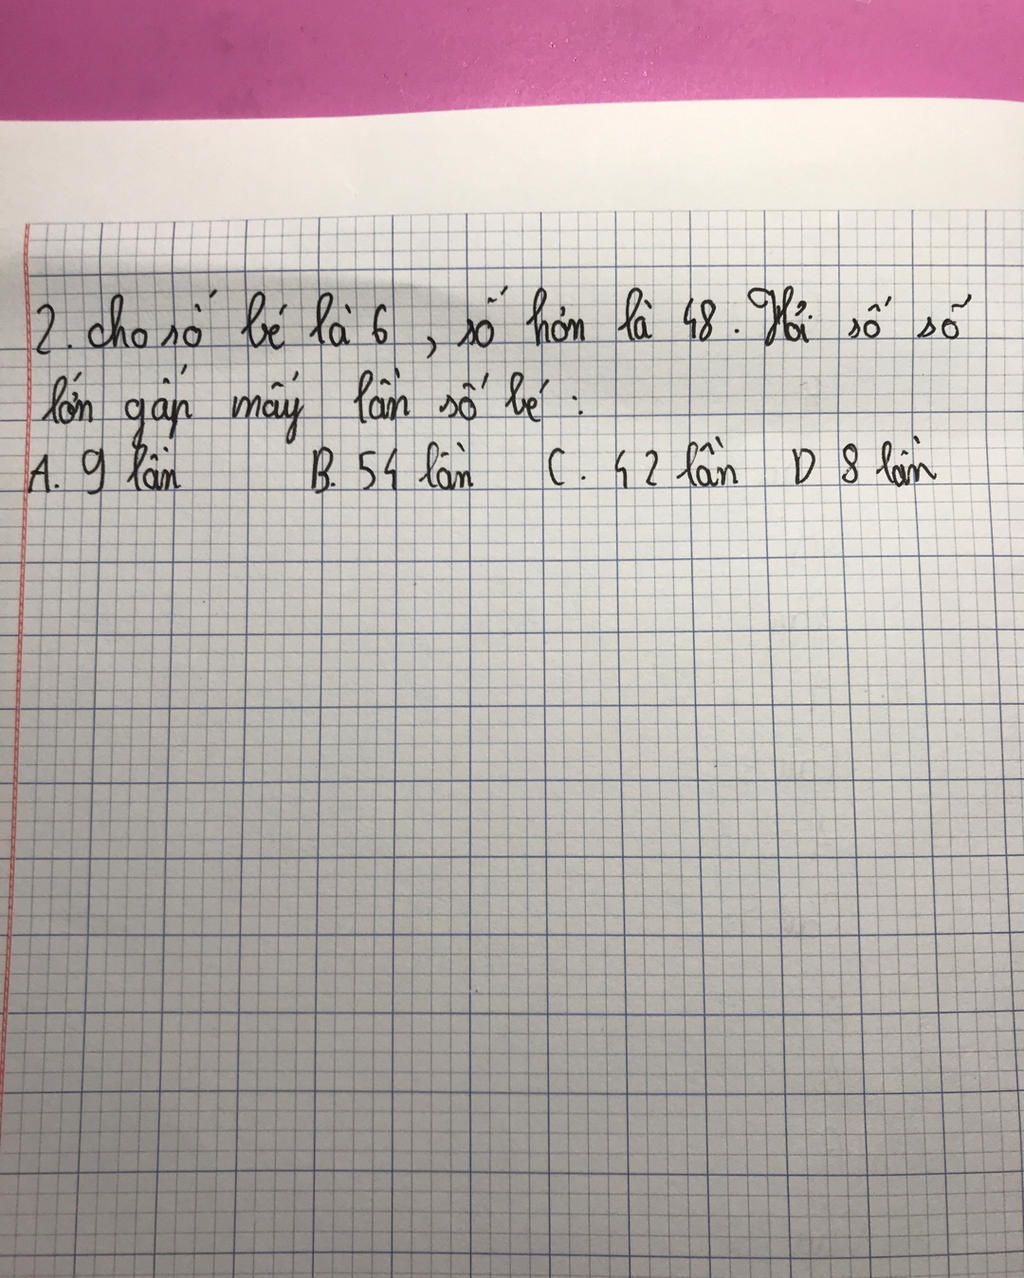 2. cho số bé là 6, số hơn là 48. Hỏi số số
lớn gấp mấy lần số bé :
A. 9 lần B. 54 lần C. 42 lần D 8 lần